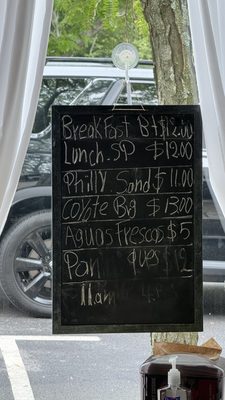 BreakFast B4 $12.00
Lunch.SP $12.00
Philly Sand $11.00
Coyote Big $13.00
Aguas Frescas $5
Pan ques $12